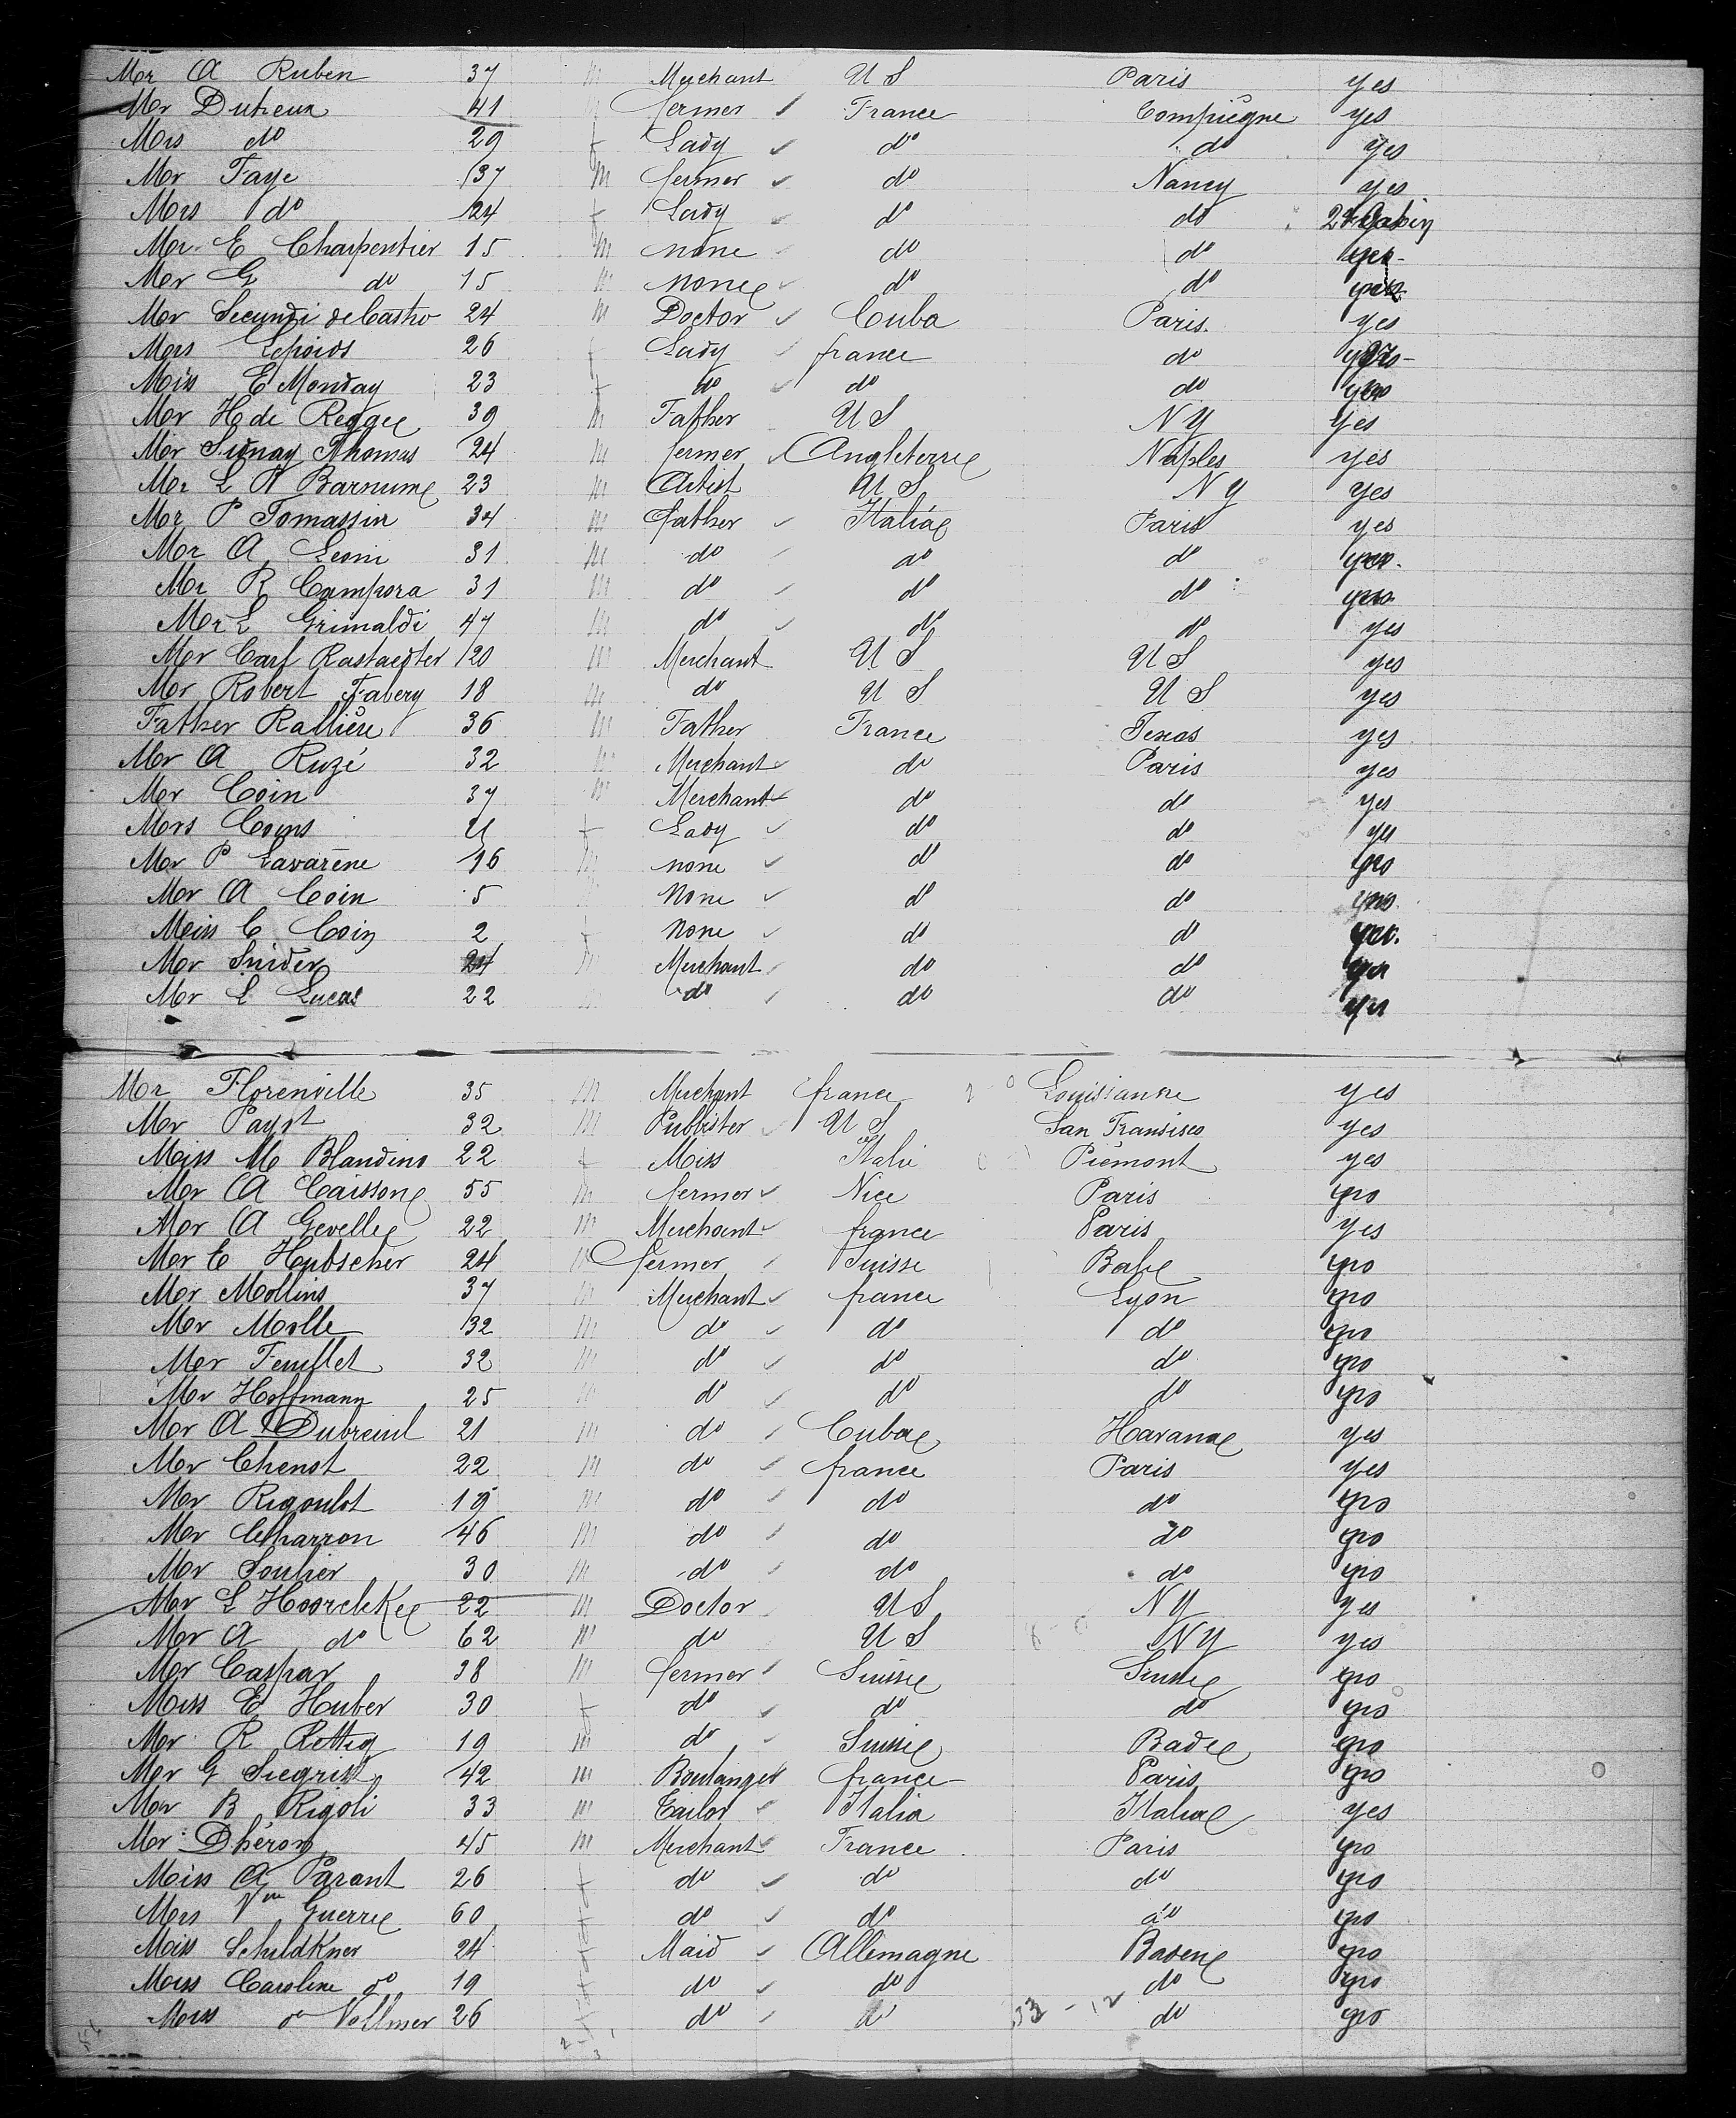 Mr A Ruben 37 m Merchant U S Paris yes
Mr Dutreux 41 m fermer France Compiègne yes
Mrs do 29 f Lady do do yes
Mr Faye 37 m fermer do Nancy yes
Mrs do 24 f Lady do do
Mr E Charpentier 15 m none do do
Mr G do 15 m none do do
Mr Secundi de Castro 24 m Doctor Cuba Paris. yes
Mrs Lepoids 26 f Lady france do
Miss E Monday 23 f do do do
Mr H de Reggee 39 m Father U S N Y Yes
Mr Sidnay Thomas 24 m fermer Angleterre Naples yes
Mr L N Barnume 23 m Artist U S N Y yes
Mr P Tomassin 34 m father Italiae Paris yes
Mr A Leoni 31 m do do do
Mr R Campora 31 m do do do
Mr L Grimaldi 47 m do do do yes
Mr Carl Rastaedter 20 m Merchant U S U S yes
Mr Robert Fabery 18 m do U S U S yes
Father Rallière 36 m Father France Texas yes
Mr A Ruzé 32 m Merchant do Paris yes
Mr Coin 37 m Merchant do do yes
Mrs Coins f Lady do do yes
Mr P Lavarène 16 m none do do
Mr A Coin 5 none do do
Miss C Coin 2 f none do do
Mr Snider 24 m Merchant do do
Mr L Lucas 22 m do do do yes
Mr Florenville 35 m Merchant france Louisianne yes
Mr Payot 32 m Publister U S San Fransisco yes
Miss M Blandino 22 f Miss Italie Piémont yes
Mr A Caissone 55 m fermer Nice Paris
Mr A Gevelle 22 m Merchant france Paris yes
Mr C Hubscher 24 m fermer Suisse Bale
Mr Mollins 37 m Merchant france Lyon
Mr Molle 32 m do do do
Mr Feuillet 32 m do do do
Mr Hoffmann 25 m do do do
Mr A Dubreuil 21 m do Cubae Havanae yes
Mr Chenot 22 m do france Paris yes
Mr Rigoulot 19 m do do do
Mr Charron 46 m do do do
Mr Soulier 30 m do do do
Mr L 22 m Doctor U S N Y yes
Mr A do 62 m do U S N Y yes
Mr Caspar 38 m fermer Suisse Suisse
Miss E Huber 30 f do do do
Mr R Rettig 19 m do Suisse Badee
Mr G Siegrist 42 m Boulanger france Paris
Mr B Rigoli 33 m Tailor Italia Italiae yes
Mr Dhéron 45 m Merchant France Paris
Miss A Parant 26 f do do do
Mrs Vve Guerre 60 f do do do
Miss Schuldkner 24 f Maid Allemagne Badene
Miss Caroline do 19 f do do do
Miss do Vollmer 26 f do do 33 - 12 do